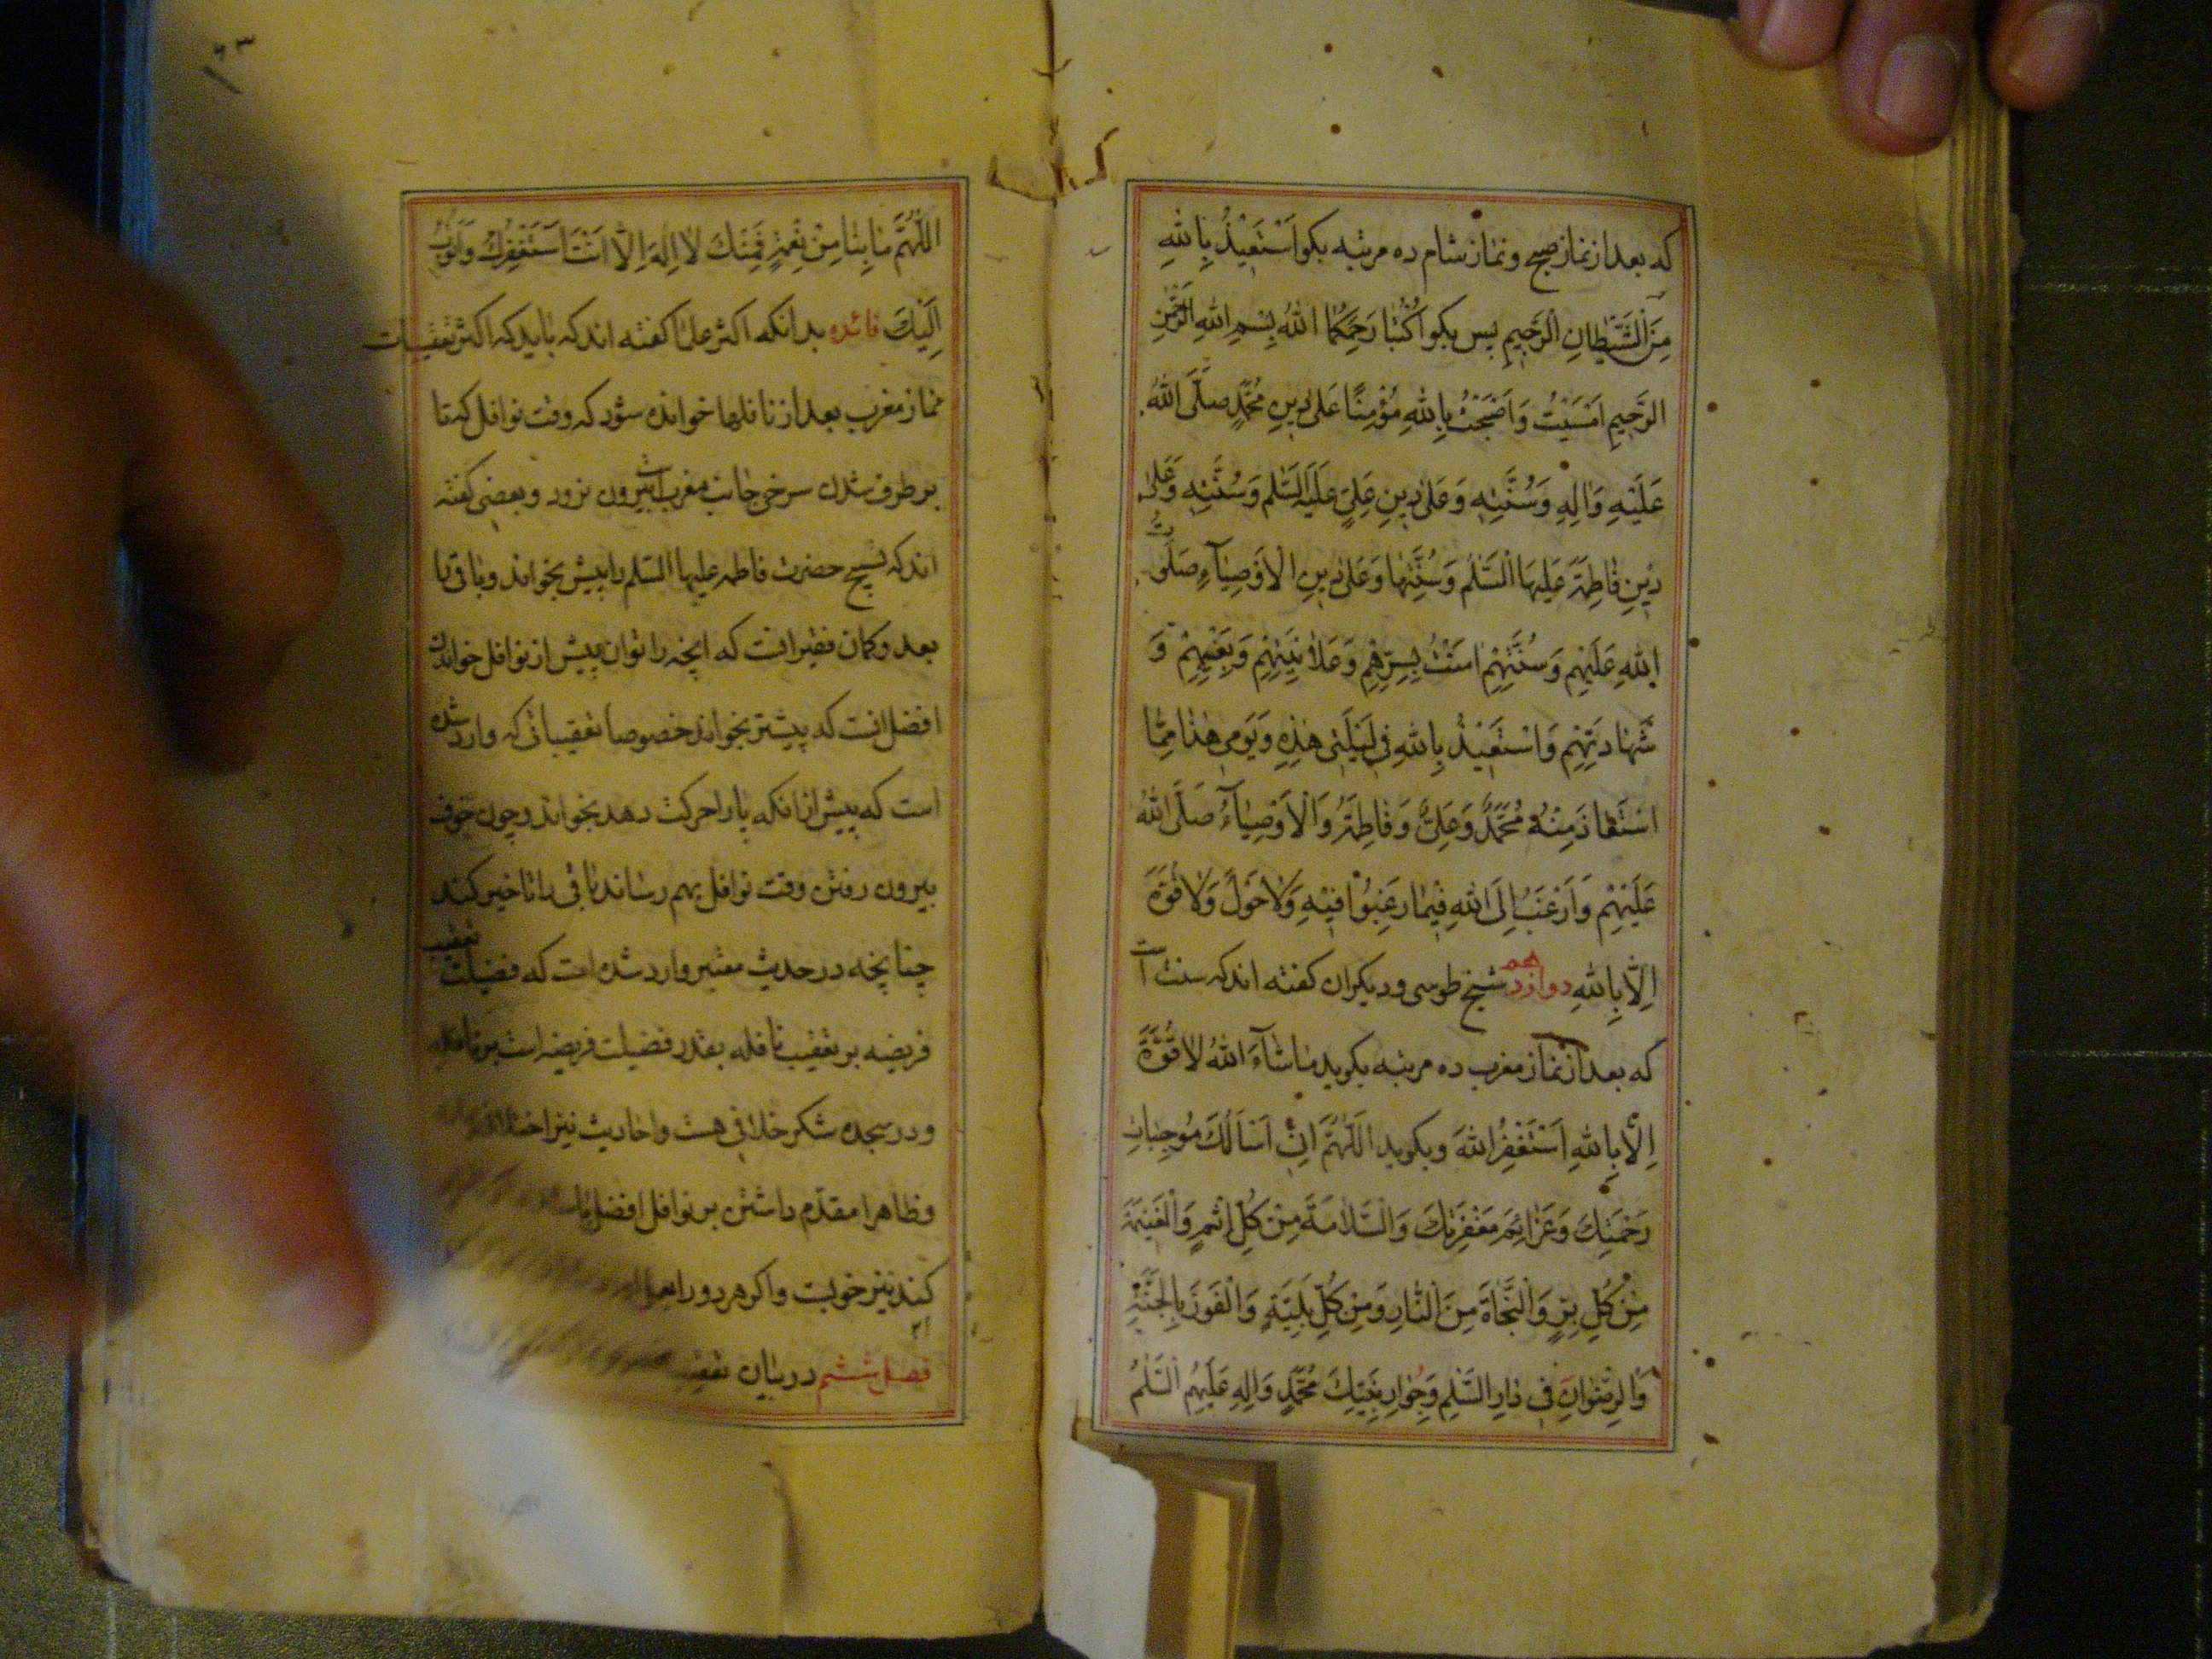 که بعد از نماز صبح و نماز شام ده مرتبه بکو اَسْتَعِیْذُ بِاللهِ
مِنَ الشَّیْطانِ الرَّجِیمِ پس بکو اُکْتُبا رَحِمَکُمَا اللهُ بِسْمِ اللهِ الرَّحْمنِ
الرَّحِیمِ اَمْسَیْتُ وَاَصْبَحْتُ بِاللهِ مُؤْمِنًا عَلی دِینِ مُحَمَّدٍ صَلَّی اللهُ
عَلَیْهِ وَالِهِ وَسُنَّتِه وَعَلی دِینِ عَلِیٍّ عَلَیْهِ السَّلم وَسُنَّتِه وَعَلی
دِینِ فاطِمَةَ عَلَیْهَا السَّلمُ وَسُنَّتِها وَعَلی دِینِ الْاَوْصِیآءِ صَلَوتُ
اللهِ عَلَیْهِم وَسُنَّتِهِمْ امَنْتُ بِسِرِّهِمْ وَعَلانِیَتِهِمْ وَبِغَیْبِهِمْ وَ
شَهادَتِهِمْ وَاَسْتَعِیْذُ بِاللهِ فی لَیْلَتی هذِهِ وَیَوْمی هذا مِمَّا
اسْتَعاذَ مِنْهُ مُحَمَّدٌ وَعَلِیٌّ وَفاطِمَةُ وَالْاَوْصِیآءُ صَلَّی اللهُ
عَلَیْهِمْ وَاَرْغَبُ اِلَی اللهِ فِیْما رَغِبُوْا فِیْهِ وَلا حَوْلَ وَلا قُوَّةَ
اِلَّا بِاللهِ دوازدهم شیخ طوسی و دیکران کفته اند که سنت است
که بعد از نماز مغرب ده مرتبه بکوید ما شآءَ اللهُ لا قُوَّةَ
اِلَّا بِاللهِ اَسْتَغْفِرُ اللهَ و بکوید اللّهُمَّ اِنّی اَسْاَلُکَ مُوجِباتِ
رَحْمَتِکَ وَعَزائِمَ مَغْفِرَتِکَ وَالسَّلامَةَ مِنْ کُلِّ اِثْمٍ وَالْغَنِیْمَةَ
مِنْ کُلِّ بِرٍّ وَالنَّجاةَ مِنَ النّارِ وَمِنْ کُلِّ بَلِیَّةٍ وَالْفَوْزَ بِالْجَنَّةِ
وَالرِّضْوانَ فی دارِ السَّلمِ وَجِوارِ نَبِیِّکَ مُحَمَّدٍ وَالِهِ عَلَیْهِمُ السَّلمُ
اللّهُمَّ ما بِنا مِنْ نِعْمَةٍ فَمِنْکَ لا اِلهَ اِلّا اَنْتَ اَسْتَغْفِرُکَ وَاَتُوبُ
اِلَیْکَ فائده بدانکه اکثر علما کفته اند که باید که اکثر تعقیبات
نماز مغرب بعد از نافلها خوانده شود که وقت نوافل که تا
برطرف شدن سرخی جانب مغربست بیرون نرود و بعضی کفته
اند که تسبیح حضرت فاطمه علیها السلم را پیش بخواند و باقی را
بعد و کمان فقیر انست که انچه را توان پیش از نوافل خواندن
افضل انست که پیشتر بخواند خصوصا تعقیباتی که وارد شده
است که پیش از انکه پا را حرکت دهد بخواند و چون خوف
بیرون رفتن وقت نوافل بهم رساند باقی را تاخیر کند
چنانچه در حدیث معتبر وارد شده است که فضیلت تعقیب
فریضه بر تعقیب نافله بقدر فضیلت فریضه است بر نافله
و در سجده شکر خلافی هست و احادیث نیز
و ظاهرا مقدّم داشتن بر نوافل افضل
کند نیز خوبست و اکر هر دو را
فصل ششم در بیان